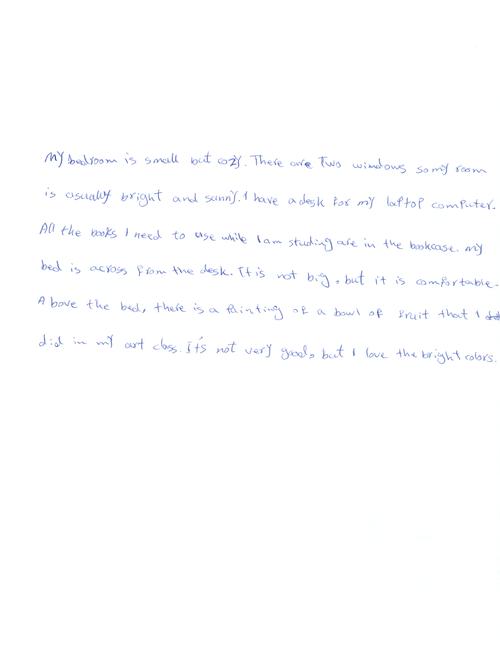 My bedroom is small but cozy. There are Two windows so my room
is usually bright and sunny. I have a desk for my laptop computer.
All the books I need to use while I am studing are in the bookcase. my
bed is across from the desk. It is not big, but it is comfortable.
Above the bed, there is a Painting of a bowl of fruit that I
did in my art class. It's not very good, but I love the bright colors.